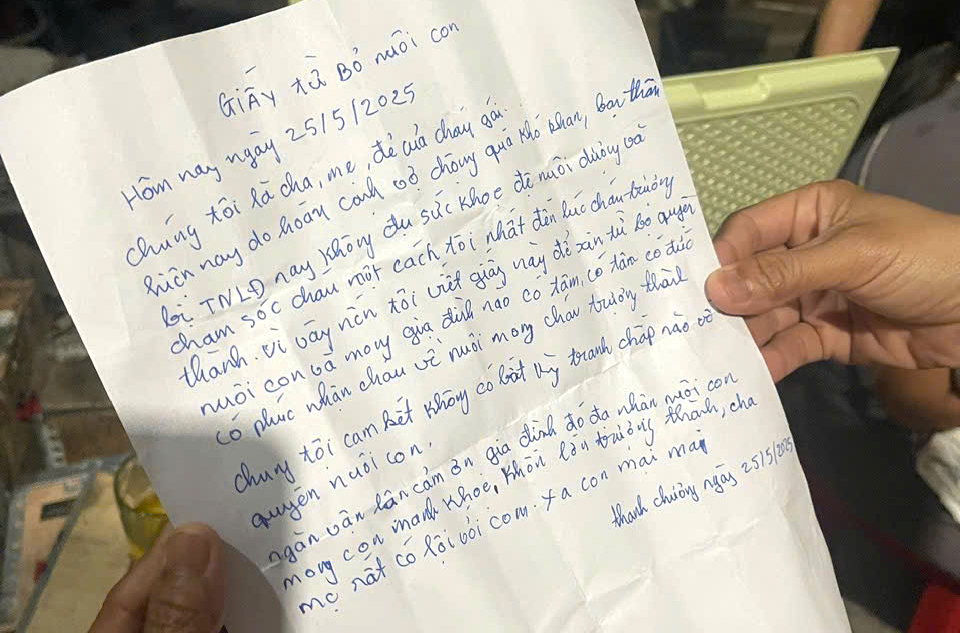 GIẤY từ Bỏ nuôi con
Hôm nay ngày 25/5/2025
chúng tôi là cha, mẹ, đẻ của cháu gái.
hiện nay do hoàn cảnh vợ chồng quá khó khăn, bản thân
bị TNLĐ nay không đủ sức khoẻ để nuôi dưỡng và
chăm sóc cháu một cách tôi nhất đến lúc cháu trưởng
thành. vì vậy nên tôi viết giấy này để xin từ bỏ quyền
nuôi con và mong gia đình nào có tâm, có tầm có đức
có phúc nhận cháu về nuôi mong cháu trưởng thành
chúng tôi cam kết không có bất kỳ tranh chấp nào về
quyền nuôi con.
ngàn vân lần cảm ơn gia đình đó đa nhân nuôi con
mong con mạnh khoẻ, khôn lớn trưởng thành, cha
mẹ rất có lỗi với con. xa con mại mai
thanh chương ngày 25/5/2025